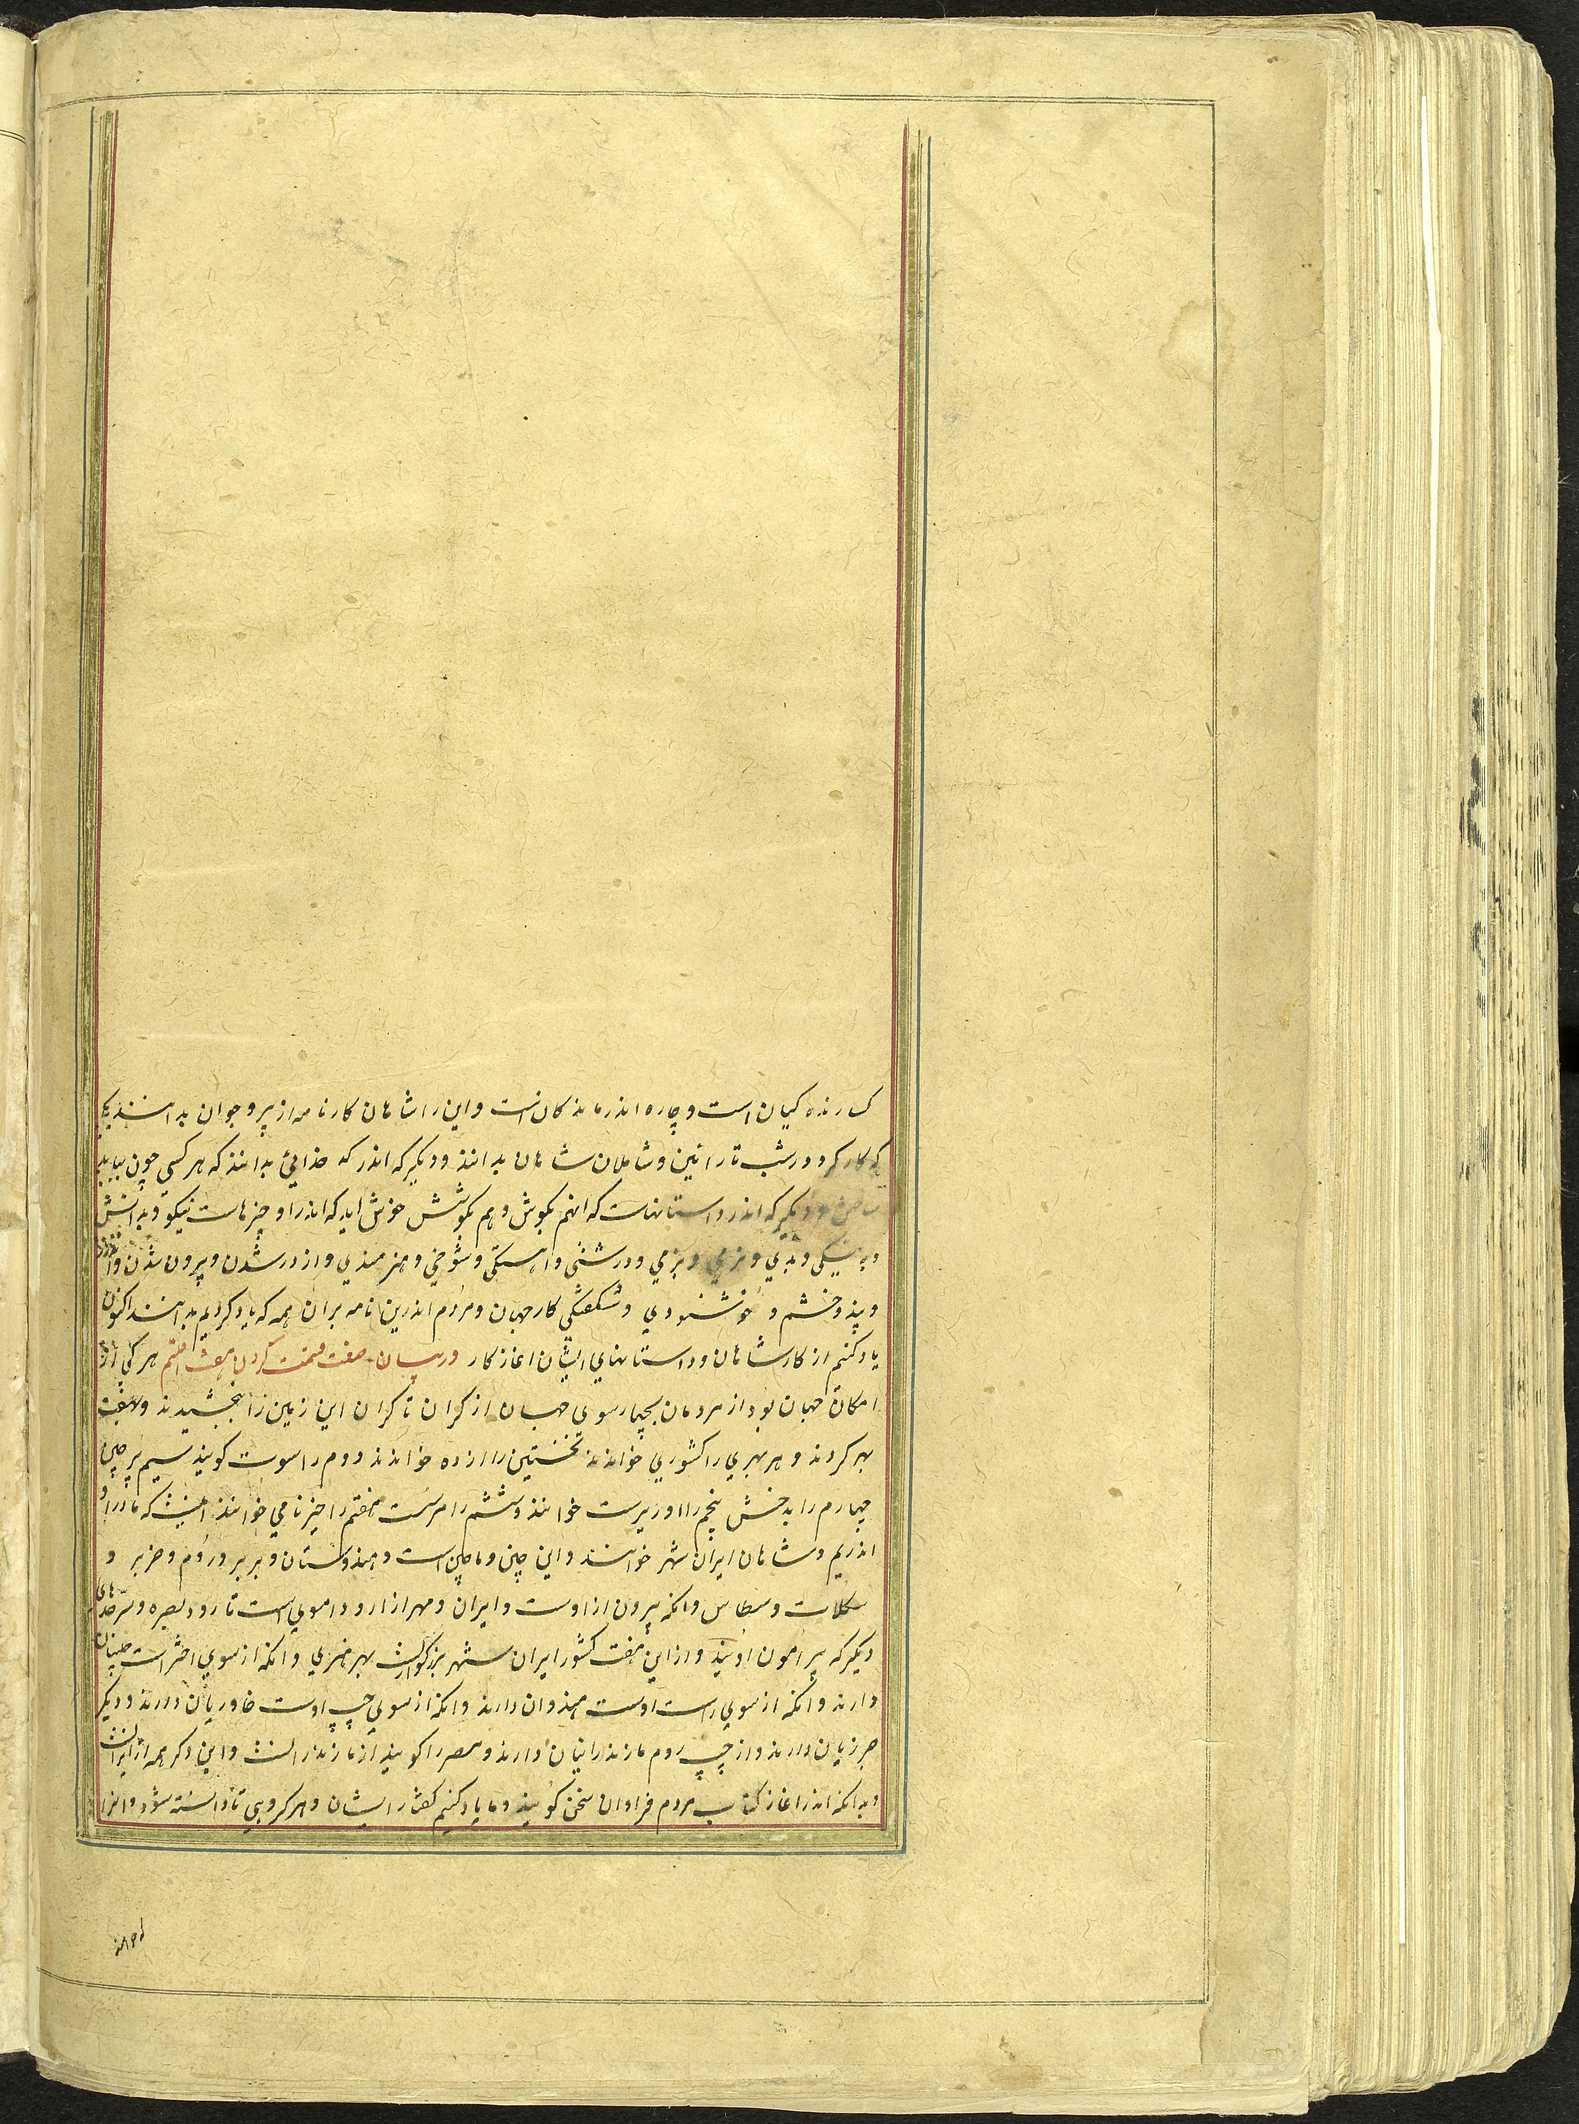 کسارنده کیهان است و چاره اندرماندکان است و این را شاهان کارنامه از پیر و جوان بدانند یکی
که کارکرد و رشب تا را ئین و شاهان شاهان بدانند و دیکر که اندر که خدایی بدانند که هر کسی چون بیابد
و دیکر که اندر داستانهاست که انهم بکوش و هم بکوشش خوش اید که اندراو چیزهاست نیکو و بدانش
و نیکی و بدی و نرمی و درشتی و اهستکی و شوخی و هنرمندی و از درشدن و بیرون شدن و اندرز
و پند و خشم و خوشنودی و شکفتی کار جهان و مردم اندرین نامه بران همه که یاد کردیم بدانند اکنون
یاد کنیم از کار شاهان و داستانهای ایشان اغاز کار در بیان صفت قسمت کردن هفت اقلیم هر کی ارا
امکاه جهان بود از مردمان بچهار سوی جهان از کران تا کران این زمین را ببخشیدند و بهفت
بهر کردند و هر بهری را کشوری خواندند نخستین را ارزه خواندند دوم را سوت کویند سیم پر چین
چهارم را بدخش پنجم را اوزیرست خوانند و ششم را مرست هفتم را خیز نامی خوانند اینست که ما دراو
اندریم و شاهان ایران شهر خوانند و این چین و ماچین است و هندوستان و بربر و روم و خزبر و
سکلات و سطاس و انکه بیرون ازاوست و ایران و مهر ازا رود اموی است تا رود بصره و سرحدهای
دیکر که پیرامون اویند و از این هفت کشور ایران شهر بزرکوارست بهر هنری و انکه از سوی اخترست چینیان
دارند و انکه از سوی راست اوست هندوان دارند و انکه از سوی چپ اوست خاوریان دارند و دیکر
خرزیان دارند و از چپ روم مازندرانیان دارند و مصر را کویند از مازندرانست و این دکر همه از ایرانست
و بدانکه اندر اغاز کتاب مردم فراوان سخن کویند و ما یاد کنیم کفتار ایشان و هر کروهی تا دانسته شود و انرا